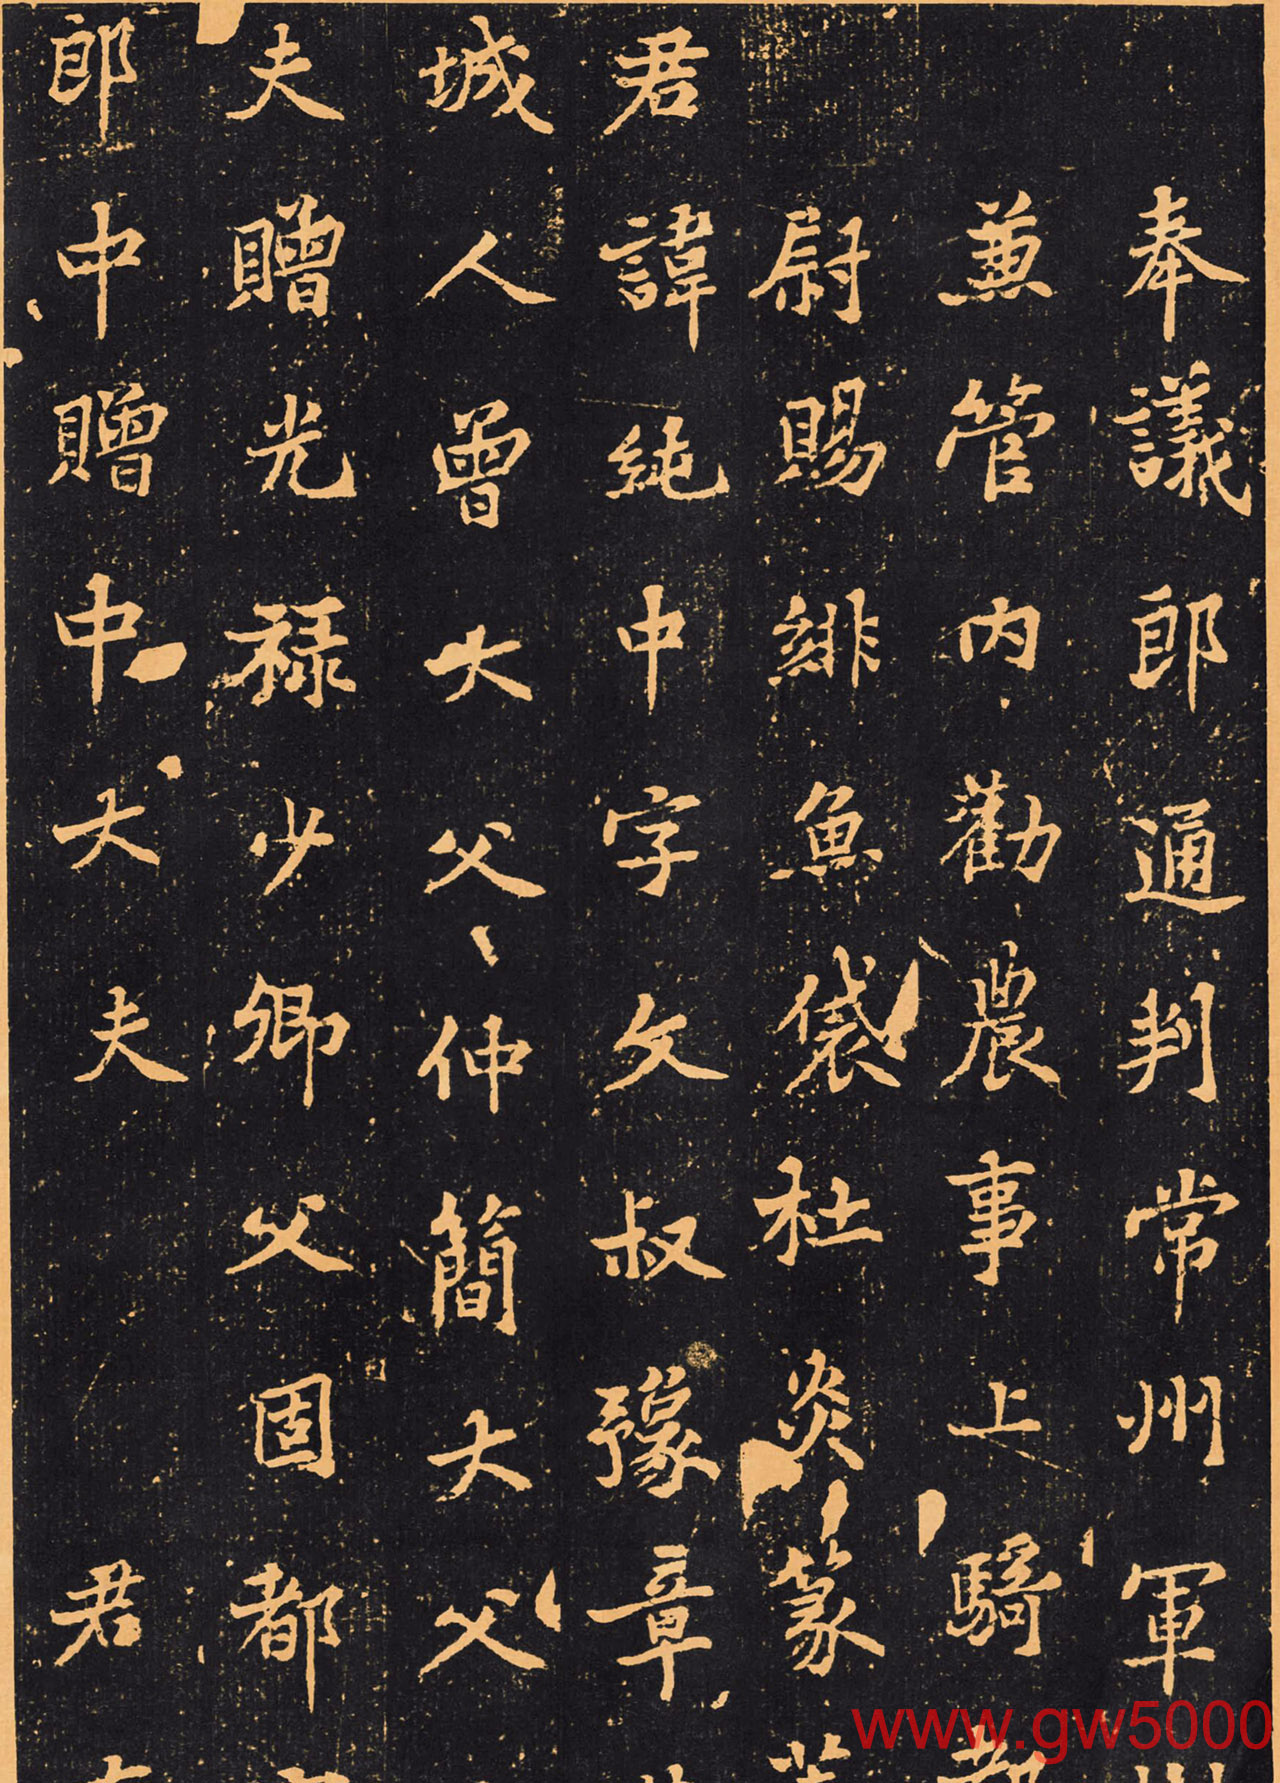 奉議郎通判常州軍州
兼管內勸農事上騎都
尉賜緋魚袋杜炎篆蓋
君諱純中字文叔豫章
城人曾大父仲簡大父
夫贈光祿少卿父固都
郎中贈中大夫 君
www.gw5000